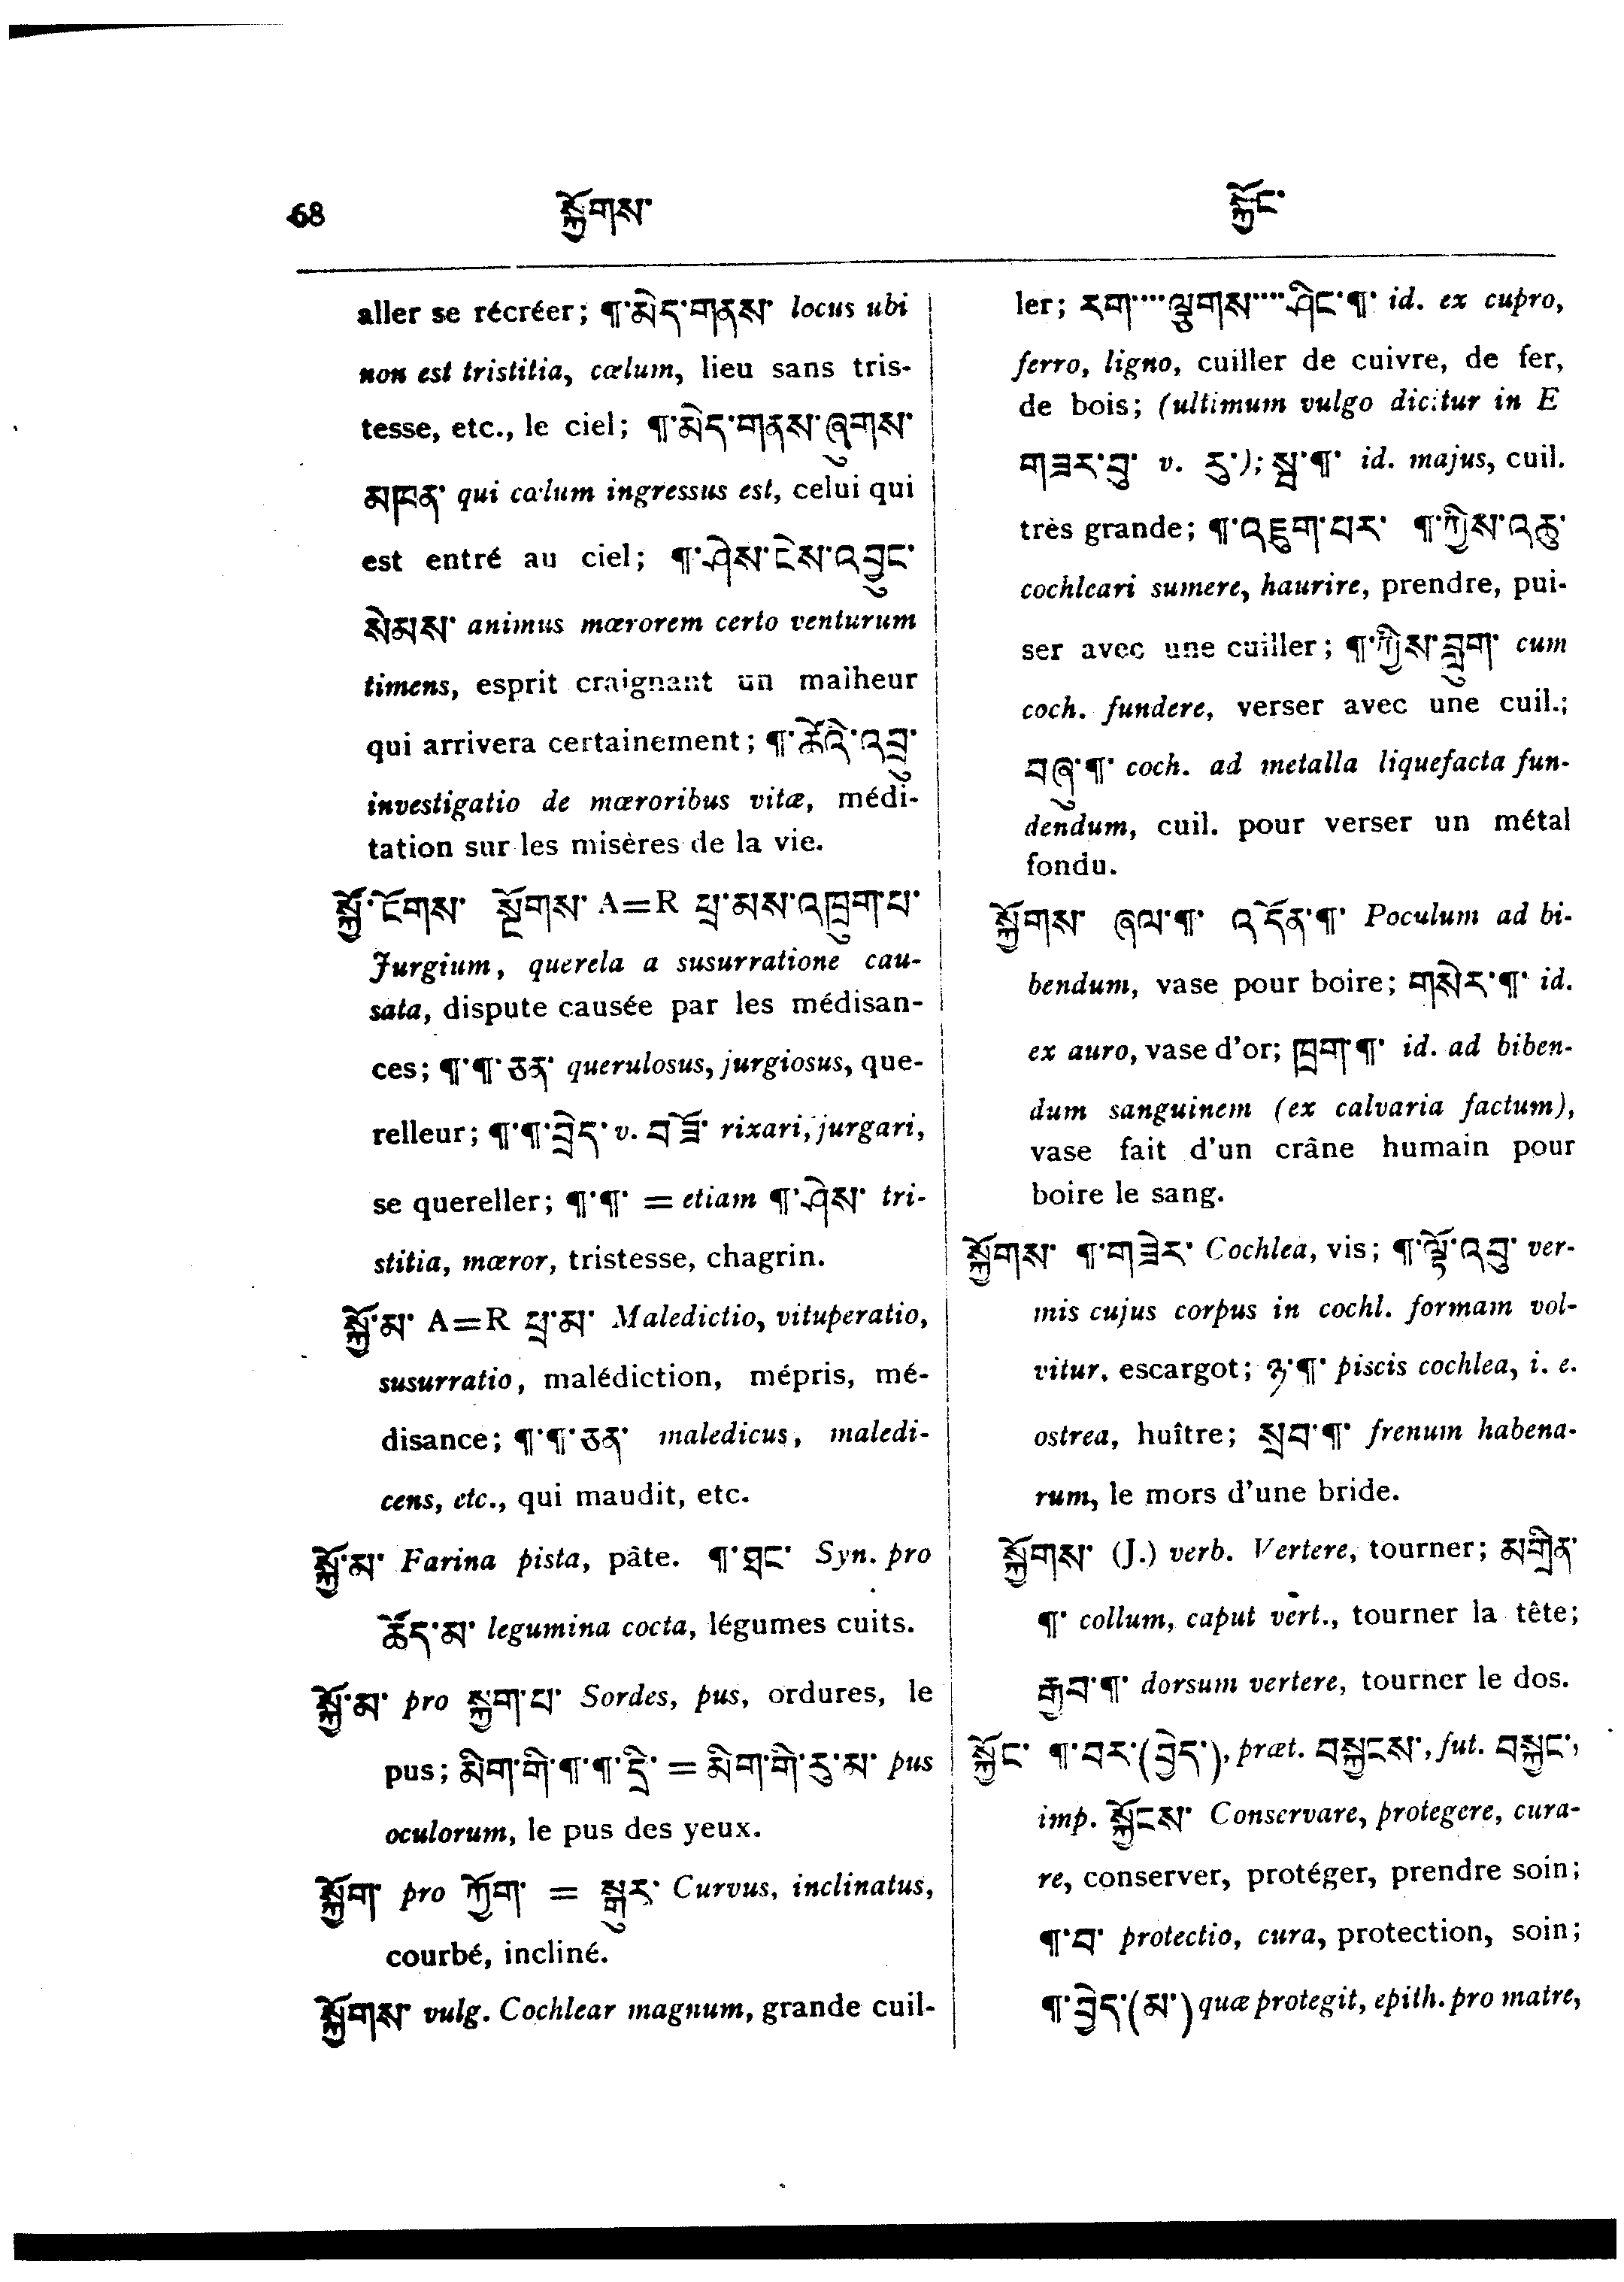 68
སྐྱོགས་
སྐྱོང་
aller se récréer; ¶་མེད་གནས་ locus ubi
non est tristitia, cœlum, lieu sans tris-
tesse, etc., le ciel; ¶་མེད་གནས་ཞུགས་
མཁན་ qui cœlum ingressus est, celui qui
est entré au ciel; ¶་ཤེས་ངེས་འབྱུང་
སེམས་ animus mœrorem certo venturum
timens, esprit craignant un malheur
qui arrivera certainement; ¶་ཚོའི་འབྲུ་
investigatio de mœroribus vitæ, médi-
tation sur les misères de la vie.
སྐྱོ་ངོགས་ སྔོགས་ A=R ཕྲ་མས་འཁྲུག་པ་
Jurgium, querela a susurratione cau-
sata, dispute causée par les médisan-
ces; ¶་¶་ཅན་ querulosus, jurgiosus, que-
relleur; ¶་¶་བྱེད་ v. བཟོ་ rixari, jurgari,
se quereller; ¶་¶་ = etiam ¶་ཤེས་ tri-
stitia, mœror, tristesse, chagrin.
སྐྱོ་མ་ A=R ཕྲ་མ་ Maledictio, vituperatio,
susurratio, malédiction, mépris, mé-
disance; ¶་¶་ཅན་ maledicus, maledi-
cens, etc., qui maudit, etc.
སྐྱོ་མ་ Farina pista, pâte. ¶་ཐང་ Syn. pro
ཚོད་མ་ legumina cocta, légumes cuits.
སྐྱོ་མ་ pro སྐྱག་པ་ Sordes, pus, ordures, le
pus; མིག་གི་¶་¶་དྲི་ = མིག་གི་དྲུ་མ་ pus
oculorum, le pus des yeux.
སྐྱོག་ pro ཀྱོག་ = སྒུར་ Curvus, inclinatus,
courbé, incliné.
སྐྱོགས་ vulg. Cochlear magnum, grande cuil-
ler; རག་···ལྕགས་···ཤིང་¶་ id. ex cupro,
ferro, ligno, cuiller de cuivre, de fer,
de bois; (ultimum vulgo dicitur in E
གཟར་བུ་ v. རུ་); སྦྲ་¶་ id. majus, cuil.
très grande; ¶་འཇུག་པར་ ¶་ཀྱིས་འཆུ་
cochleari sumere, haurire, prendre, pui-
ser avec une cuiller; ¶་ཀྱིས་བླུག་ cum
coch. fundere, verser avec une cuil.;
བཞུ་¶་ coch. ad metalla liquefacta fun-
dendum, cuil. pour verser un métal
fondu.
སྐྱོགས་ ཞལ་¶་ འདོན་¶་ Poculum ad bi-
bendum, vase pour boire; གསེར་¶་ id.
ex auro, vase d'or; ཁྲག་¶་ id. ad biben-
dum sanguinem (ex calvaria factum),
vase fait d'un crâne humain pour
boire le sang.
སྐྱོགས་ ¶་གཟེར་ Cochlea, vis; ¶་ལྟོ་འབུ་ ver-
mis cujus corpus in cochl. formam vol-
vitur, escargot; ཉ་¶་ piscis cochlea, i. e.
ostrea, huître; སྲབ་¶་ frenum habena-
rum, le mors d'une bride.
སྐྱོགས་ (J.) verb. Vertere, tourner; མགྲིན་
¶་ collum, caput vert., tourner la tête;
རྒྱབ་¶་ dorsum vertere, tourner le dos.
སྐྱོང་ ¶་བར་(བྱེད་), præt. བསྐྱངས་, fut. བསྐྱང་,
imp. སྐྱོངས་ Conservare, protegere, cura-
re, conserver, protéger, prendre soin;
¶་བ་ protectio, cura, protection, soin;
¶་བྱེད་(མ་) quæ protegit, epith. pro matre,